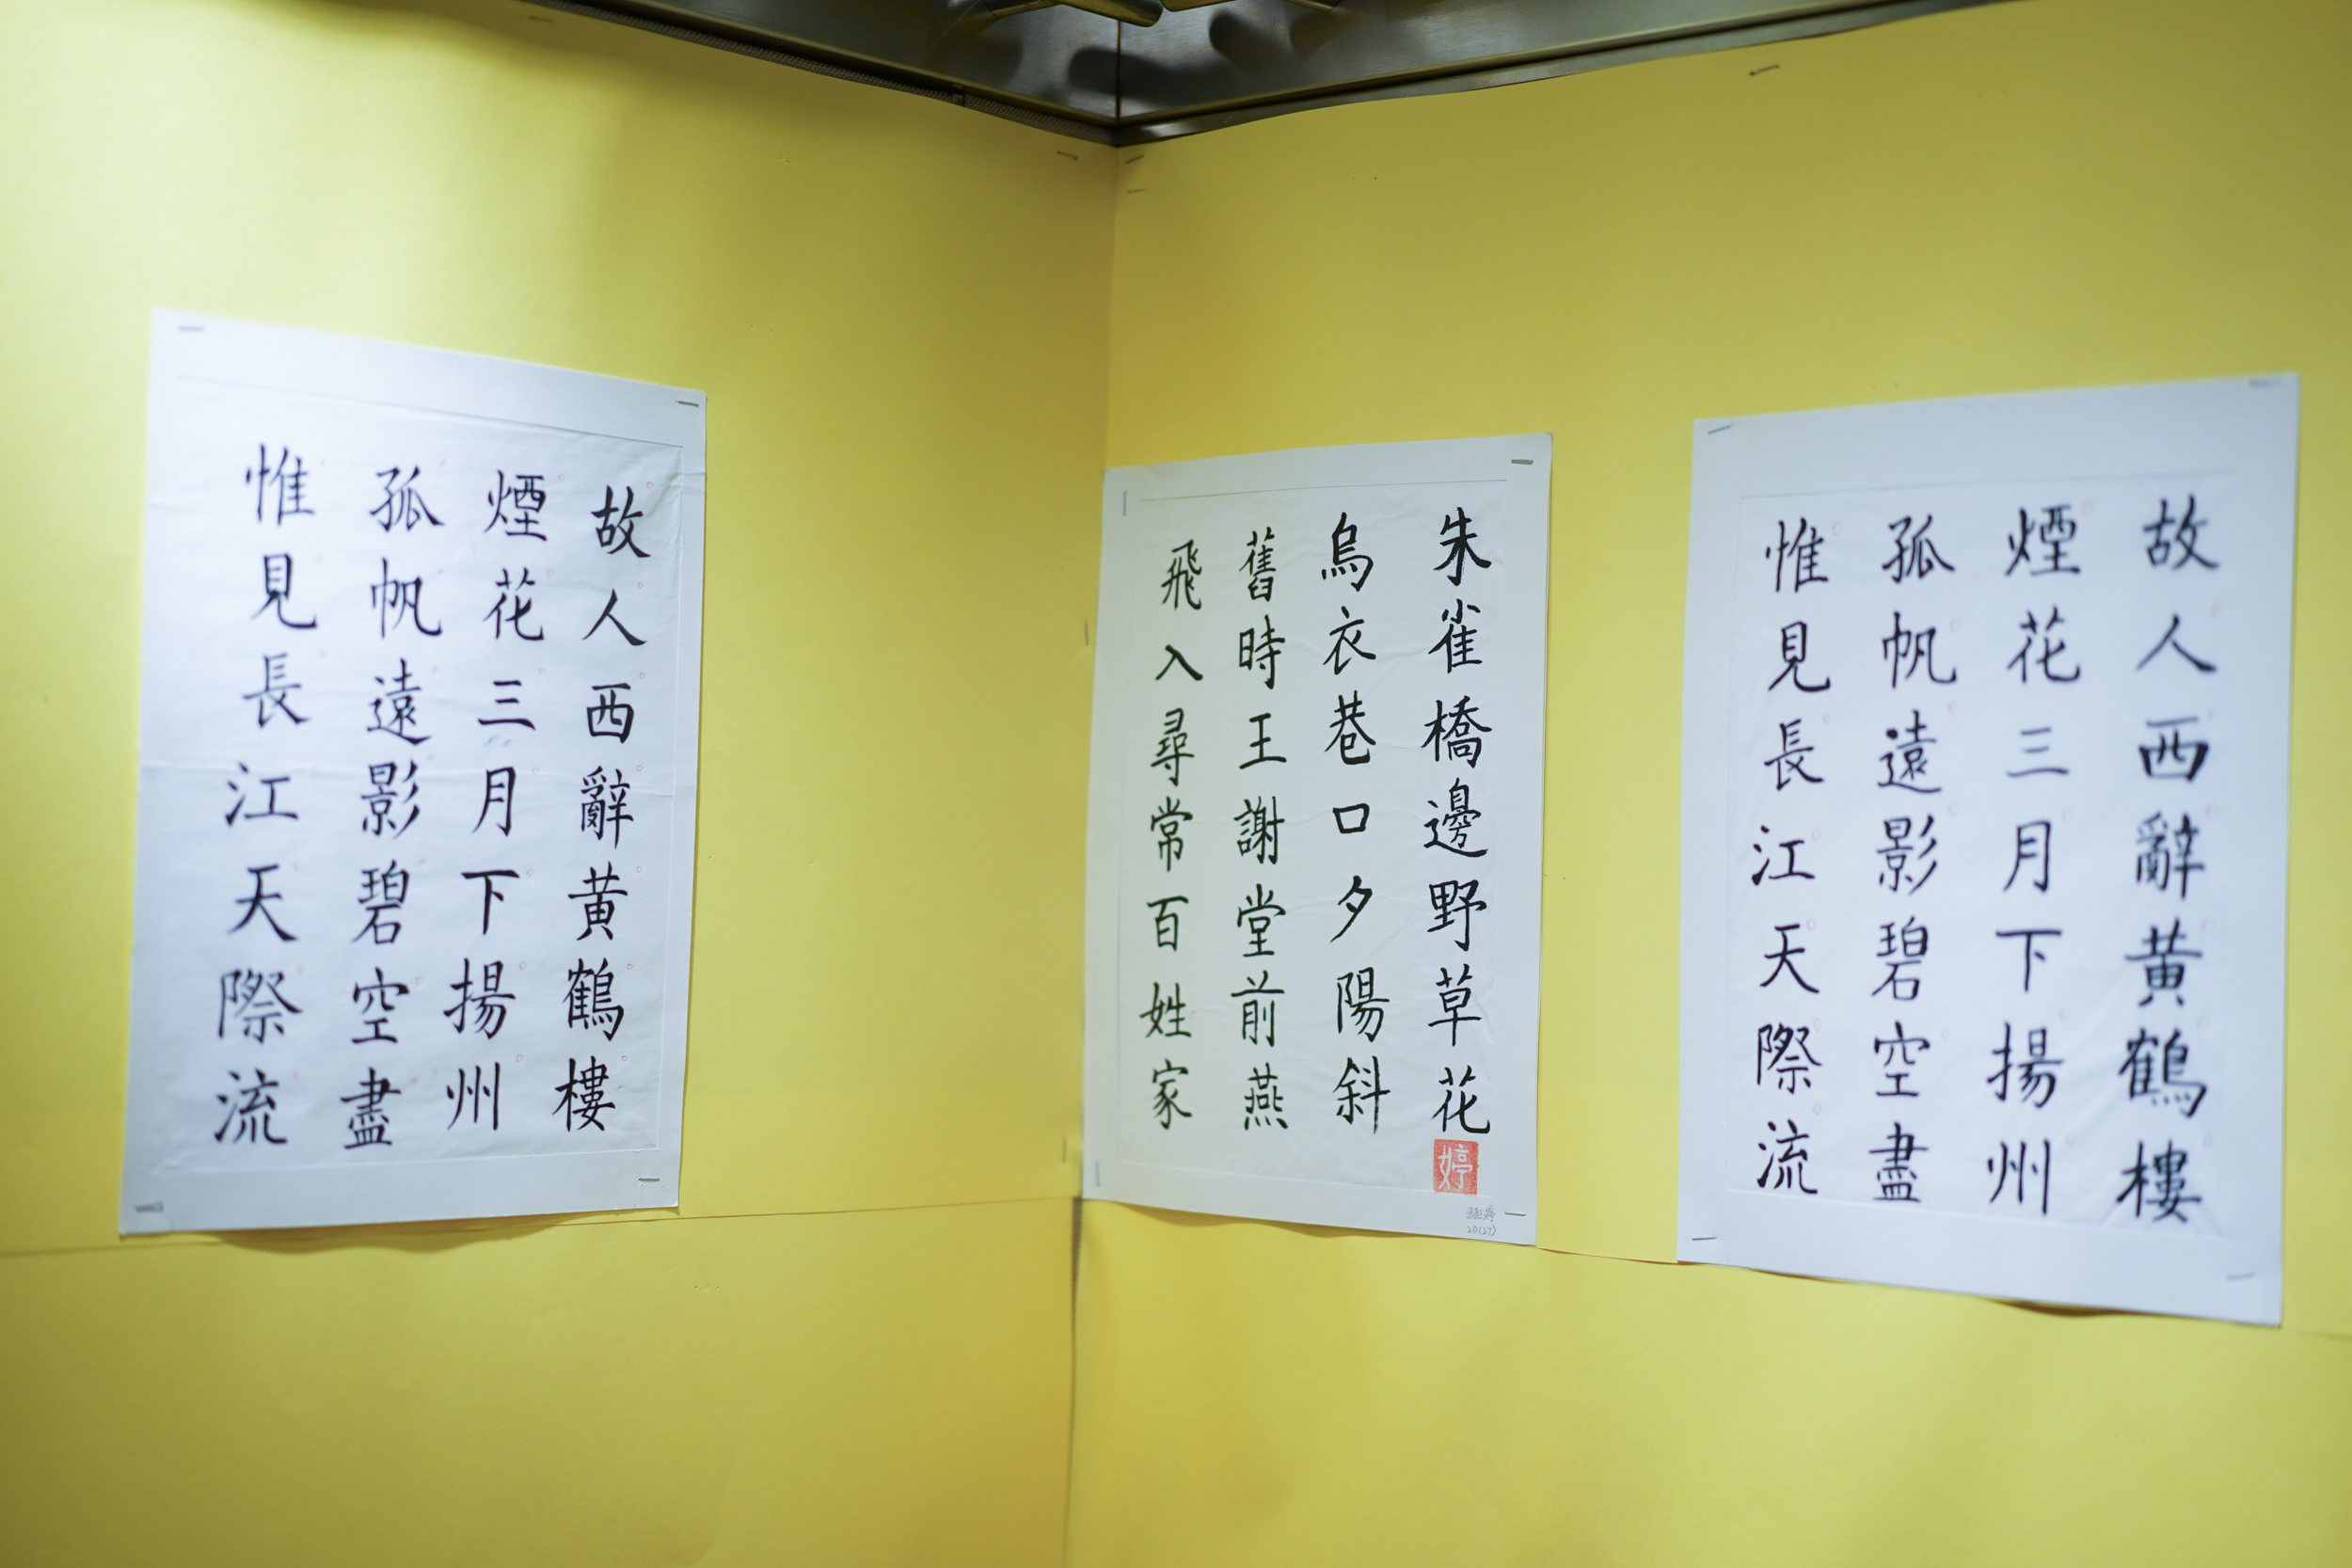 故人西辭黃鶴樓
煙花三月下揚州
孤帆遠影碧空盡
惟見長江天際流
朱雀橋邊野草花
烏衣巷口夕陽斜
舊時王謝堂前燕
飛入尋常百姓家
婷
2D(27)
故人西辭黃鶴樓
煙花三月下揚州
孤帆遠影碧空盡
惟見長江天際流